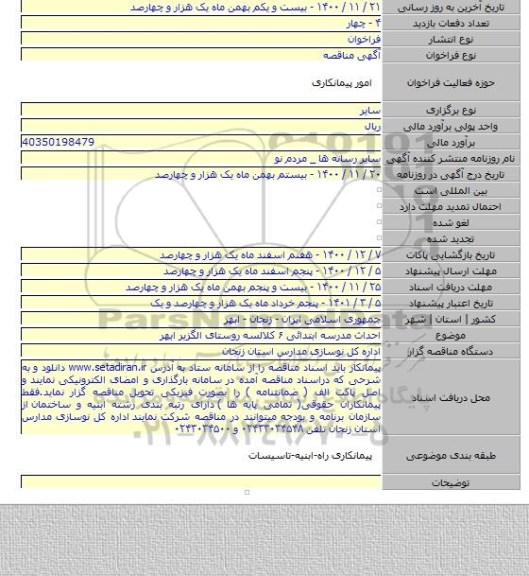 تاریخ آخرین به روز رسانی ۲۱ / ۱۱ / ۱۴۰۰ - بیست و یکم بهمن ماه یک هزار و چهارصد
تعداد دفعات بازدید ۴ - چهار
نوع انتشار فراخوان
نوع فراخوان آگهی مناقصه
حوزه فعالیت فراخوان امور پیمانکاری
نوع برگزاری سایر
واحد پولی برآورد مالی ریال
برآورد مالی 40350198479
نام روزنامه منتشر کننده آگهی سایر رسانه ها _ مردم نو
تاریخ درج آگهی در روزنامه ۲۰ / ۱۱ / ۱۴۰۰ - بیستم بهمن ماه یک هزار و چهارصد
بین المللی است
احتمال تمدید مهلت دارد
لغو شده
تجدید شده
تاریخ بازگشایی پاکات ۷ / ۱۲ / ۱۴۰۰ - هفتم اسفند ماه یک هزار و چهارصد
مهلت ارسال پیشنهاد ۵ / ۱۲ / ۱۴۰۰ - پنجم اسفند ماه یک هزار و چهارصد
مهلت دریافت اسناد ۲۵ / ۱۱ / ۱۴۰۰ - بیست و پنجم بهمن ماه یک هزار و چهارصد
تاریخ اعتبار پیشنهاد ۵ / ۳ / ۱۴۰۱ - پنجم خرداد ماه یک هزار و چهارصد و یک
کشور | استان | شهر جمهوری اسلامی ایران - زنجان - ابهر
موضوع احداث مدرسه ابتدائی ۶ کلاسه روستای الگزیر ابهر
دستگاه مناقصه گزار اداره کل نوسازی مدارس استان زنجان
محل دریافت اسناد پیمانکار باید اسناد مناقصه را از سامانه ستاد به آدرس www.setadiran.ir دانلود و به
شرحی که دراسناد مناقصه آمده در سامانه بارگذاری و امضای الکترونیکی نمایند و
اصل پاکت الف ( ضمانتنامه ) را بصورت فیزیکی تحویل مناقصه گزار نماید.فقط
پیمانکاران حقوقی( تمامی پایه ها ) دارای رتبه بندی رسته ابنیه و ساختمان از
سازمان برنامه و بودجه میتوانند در مناقصه شرکت نمایند اداره کل نوسازی مدارس
استان زنجان تلفن ۰۲۴۳۳۰۳۴۵۴۸ و ۰۲۴۳۳۰۳۴۵۰۰
طبقه بندی موضوعی پیمانکاری راه-ابنیه-تاسیسات
توضیحات
ParsNamadData